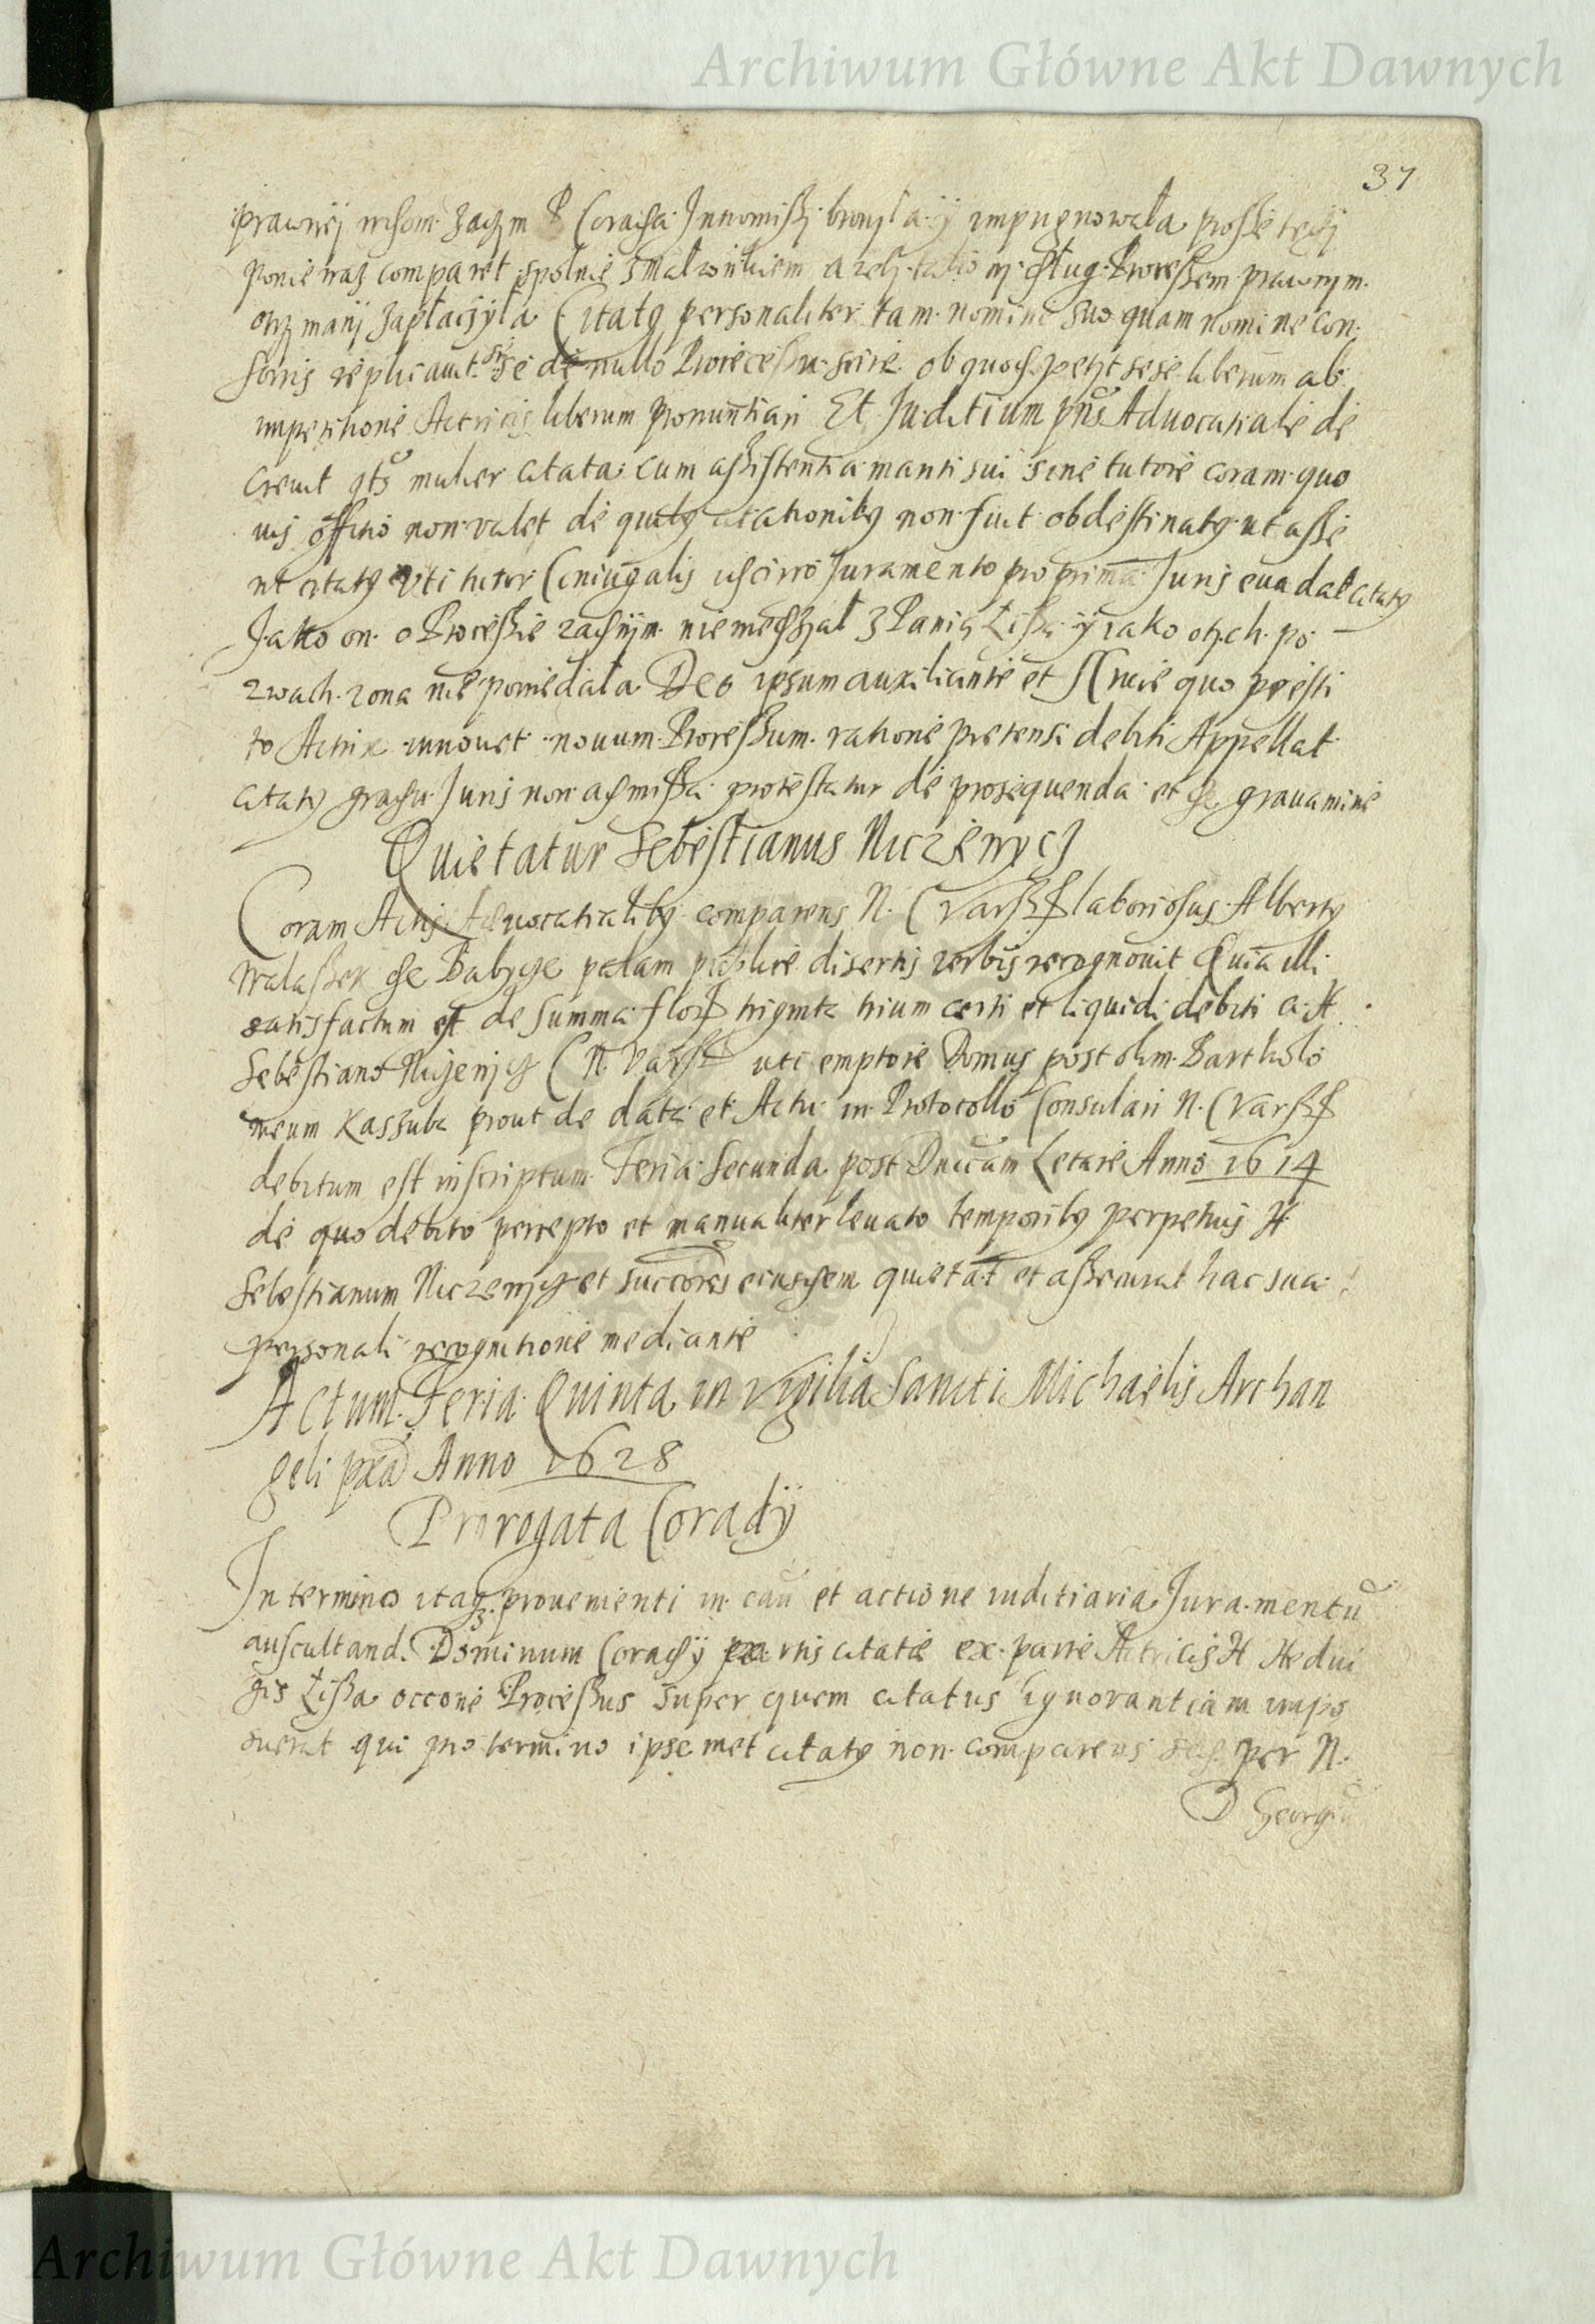 Archiwum Główne Akt Dawnych
37
prawnej zaczm P Coradia Innomissi bronjła ÿ impugnowała prosse tedj
poniewaz comparet spolnie z małzonkiem a zeby dług Processem prawnym
otrzmanj zapłaczyla Citatq personaliter tam nomine suo quam nomine con
sortis replicauit se de nullo Processu scire ob quod petyt sese liberum ab
impetitione Actricis liberum pronuntiari Et Juditium pns Aduocatiale de
creuit qts mulier citata cum assistentia mariti sui sine tutore coram quo
uis officio non valet de quibq citationibq non fuit obdestinatq ut asse
rit citatq uti tutor Coniugalis Juramento pro prima Juris euadat citatq
Jako on o Processie zadnijm nie niedział z Panią Łissą ÿ iako o tych po
zwach zona nie powiedała Deo ipsum auxiliante et S Cruce quo presti
to Actrix innouet nouum Processum ratione pretensi debiti Appellat
citatq gradu Juris non admissa protestatur de prosequenda et de grauamine
Quietatur Sebestianus Niczenycz
Coram Actis Aduocatialibq comparens N. C Varss laboriosus Albertq
Walassek de Babycze palam publice disertis verbis recognouit Quia illi
satisfactum est de summa flor triginta trium certi et liquidi debiti a H
Sebestiano Niczenycz C N. Vars uti emptore Domus post olim Bartholo
meum Kaszuba prout de data et Actu in Protocollo Consulari N. C Varss
debitum est inscriptum Feria Secunda post Dnicam Letare Anno 1614
de quo debito percepto et manualiter leuato temporibq perpetuis H
Sebestianum Niczenycz et succores eiusdem quietat et assecurat hac sua
personali recognitione mediante
Actum Feria Quinta in Vigilia Sancti Michaelis Archan
geli pxa Anno 1628
Prorogata Coradÿ
In termino itaq prouenienti in cau et actione iuditiaria Juramentu
auscultand. Dominum Coradÿ partis citatae ex parte Actricis H Hedui
gis Łissa occone Processus super quem citatus ignorantiam impo
suerat qui pro termino ipsemet citatq non comparens sed per N.
D Georgiu
Archiwum Główne Akt Dawnych